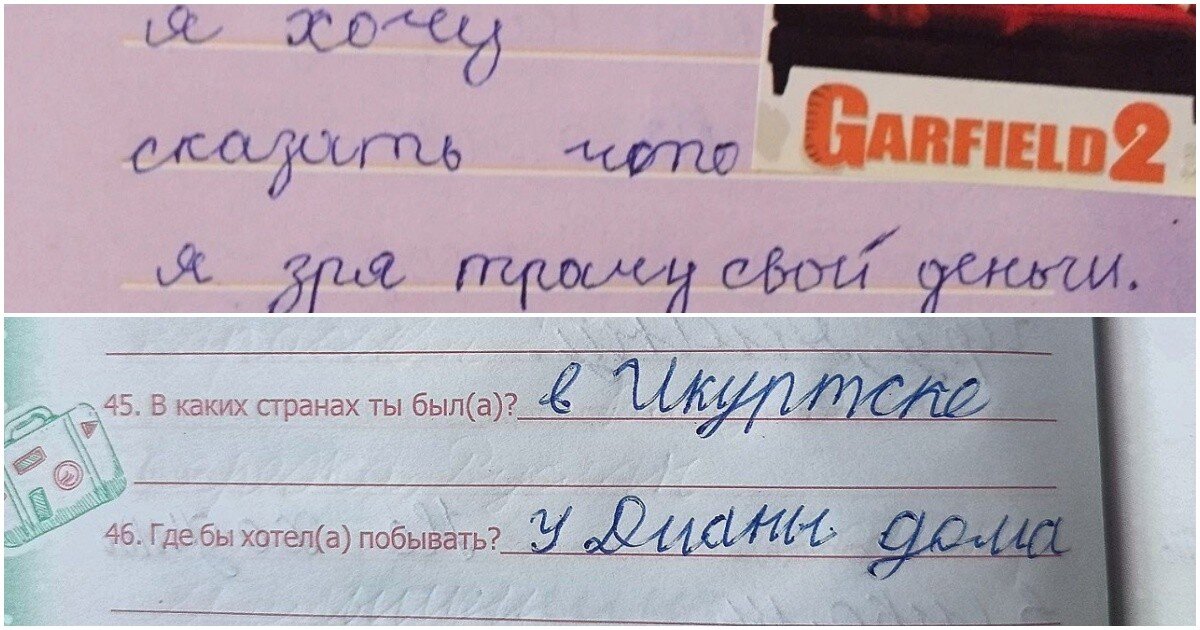 я хочу
сказать чото
GARFIELD 2
я зря трачу свой деньги.
45. В каких странах ты был(а)? в Икуртске
46. Где бы хотел(а) побывать? у Дианы дома